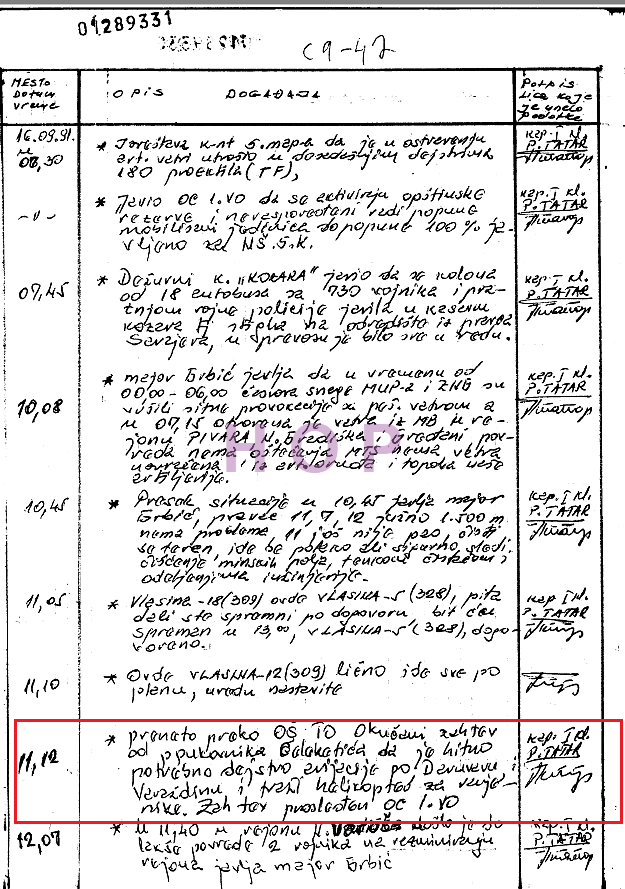 01289331
C9-47
MESTO Datum vreme
OPIS DOGAĐAJA
Potpis lica koje je unelo podatke
16.09.91. u 06,30
* Izveštava k-nt 5. map-a da je u ostvarenju
art. vatri utrošio u dosadašnjim dejstvima
180 projektila (TF),
kap. I kl. P. TATAR
-"-
* Javio OC 1. VO da se aktiviraju opštinske
rezerve i neraspoređeni radi popune
mobilisani jedinica do popune 100% ja-
vljeno za NŠ 5. K.
kap. I kl. P. TATAR
07,45
* Dežurni k. "KOZARA" javio da se kolona
od 18 autobusa sa 730 vojnika i pra-
tnjom vojne policije javila u kasarnu
iz pravca
Sarajeva, u sve u redu.
kap. I kl. P. TATAR
10,08
* major Grbić javlja da u vremenu od
00,00-06,00 časova snage MUP-a i ZNG su
vršili sitne provokacije sa peš. vatrom a
u 07,15 otvorena je vatra iz MB u re-
jonu PIVARA N. Gradiška
nema oštećenja MTS nema, vatra
uzvraćena i iz
HOP
kap. I kl. P. TATAR
10,45
* Presek situacije u 10,45 javlja major
Grbić, pravac 11, 7, 12 južno 1.500 m
nema problema 11 još nije pao, čisti
se teren, ide se polako ali sigurno, sledi
čišćenje minskih polja, tenkovi
odeljenjima inžinjerije.
kap. I kl. P. TATAR
11,05
* Vlasina-18(309) ovde VLASINA-5 (328), pita
dali ste spremni po dogovoru bit ću
spreman u 13,00, VLASINA-5 (328), dogo-
voreno.
kap. I kl. P. TATAR
11,10
* Ovde VLASINA-12(309) lično ide sve po
planu, uredu nastavite
11,12
* preneto preko OŠ TO Okučani zahtev
od ppukovnika Čalakatića da je hitno
potrebno dejstvo avijacije po Daruvaru i
Varaždinu, i traži helikopter za ranje-
nike. Zahtev prosleđen OC 1. VO
kap. I kl. P. TATAR
12,07
* U 11,40 u rejonu N. Varoš došlo je do
lakše povrede 2 vojnika na
rejona javlja major Grbić
kap. I kl. P. TATAR